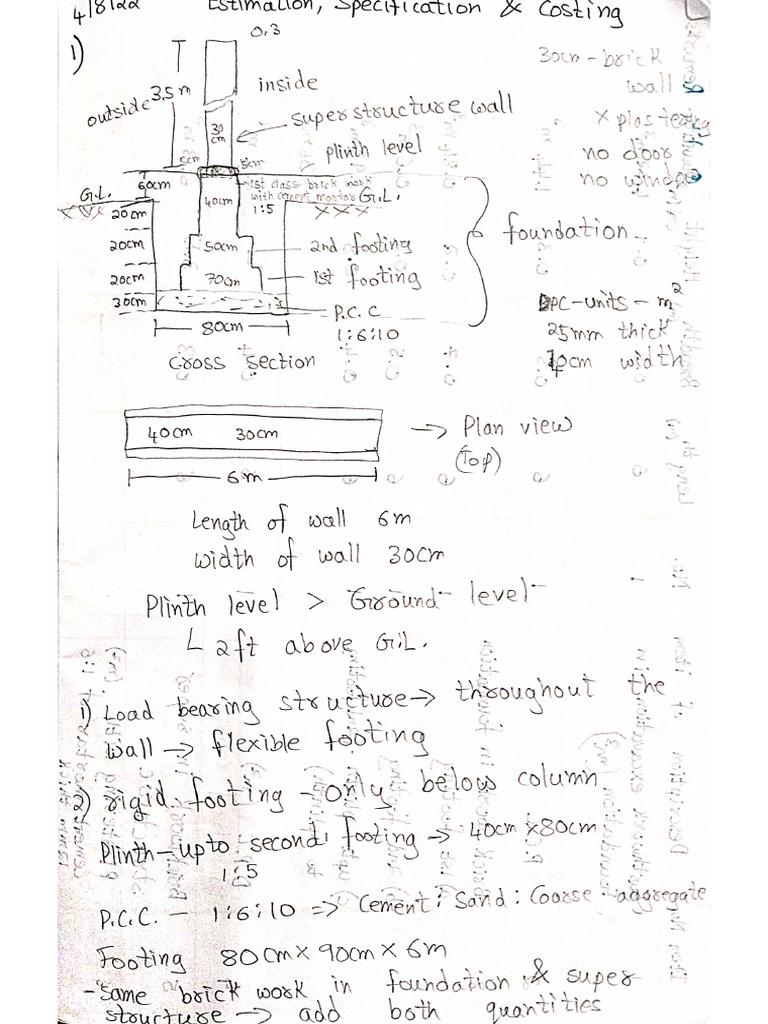 4/8/22 Estimation, Specification & Costing
1)
0.3
30cm-brick
wall
x plastering
no door
no window
outside 3.5m
inside
30
cm
superstructure wall
plinth level
5cm 5cm
60cm
1st class brick work
with cement mortar
1:5
40cm
G.L.
G.L.
20cm
20cm
50cm
2nd footing
20cm
70cm
1st footing
foundation
30cm
P.C.C
1:6:10
80cm
cross section
DPC-units-m²
25mm thick
40cm width
40cm 30cm
→ Plan view
(Top)
6m
Length of wall 6m
width of wall 30cm
Plinth level > Ground level
2ft above G.L.
1) Load bearing structure → throughout the
wall → flexible footing
2) rigid footing - only below column
Plinth-upto second footing → 40cm x80cm
1:5
P.C.C. - 1:6:10 => Cement: Sand: Coarse aggregate
Footing 80cm×90cm×6m
-same brick work in foundation & super
structure → add both quantities